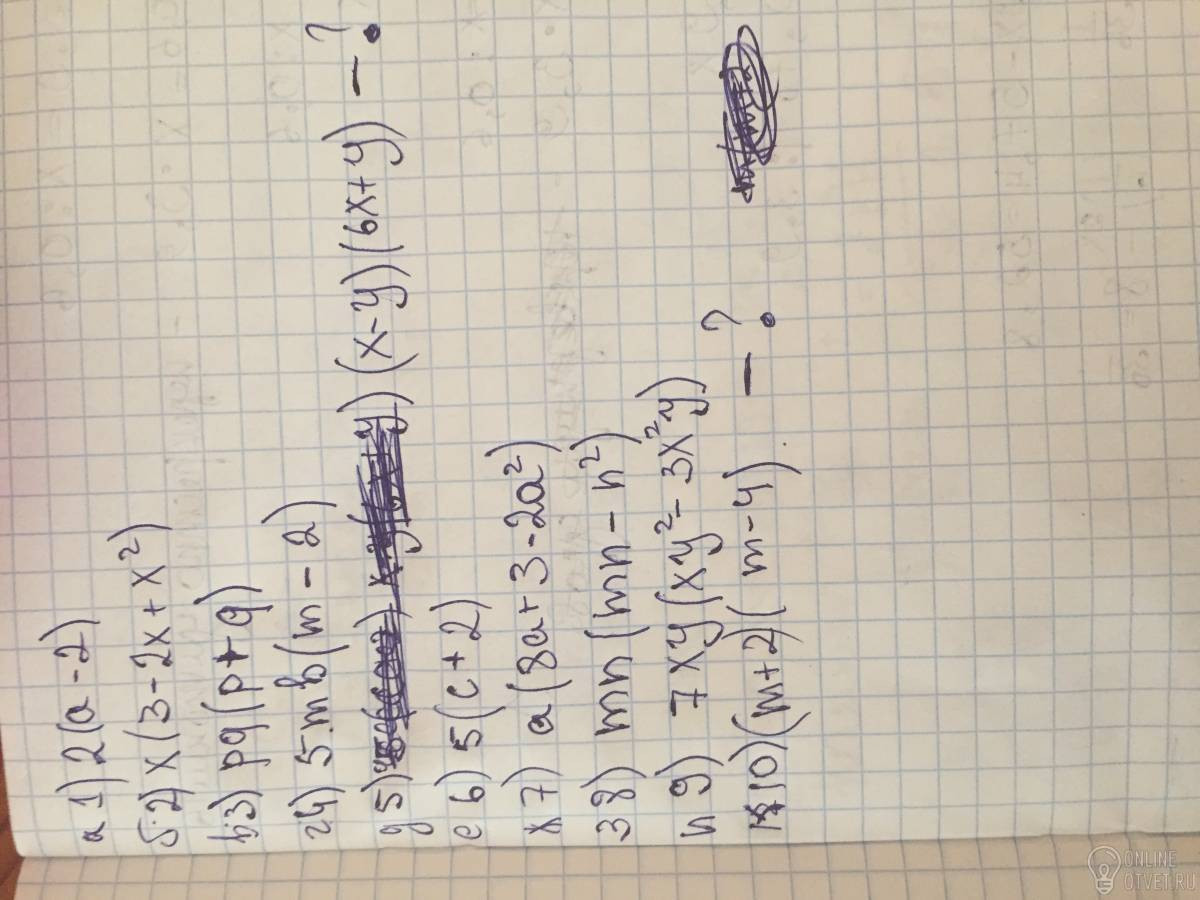 а 1) 2(a-2)
б.2) x(3-2x+x²)
в.3) pq(p+q)
г4) 5mb(m-2)
д 5) (x-y)(6x+y) - ?
е 6) 5(c+2)
ж 7) a(8a+3-2a²)
з 8) mn(mn-n²)
и 9) 7xy(xy²-3x²y)
10) (m+2)(m-4) - ?
ONLINE
OTVET.RU